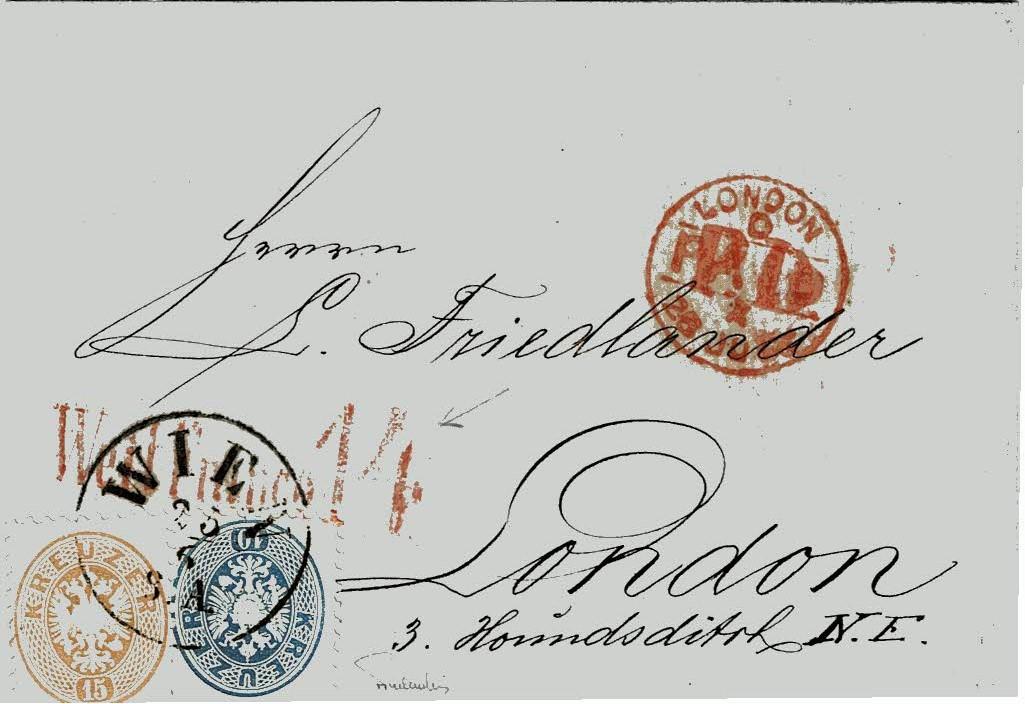 Herrn
LONDON
PAID
S. Friedlander
Weiterfranco 14
WIEN
London
3. Houndsditch N.E.
KREUZER
15
10
KREUZER